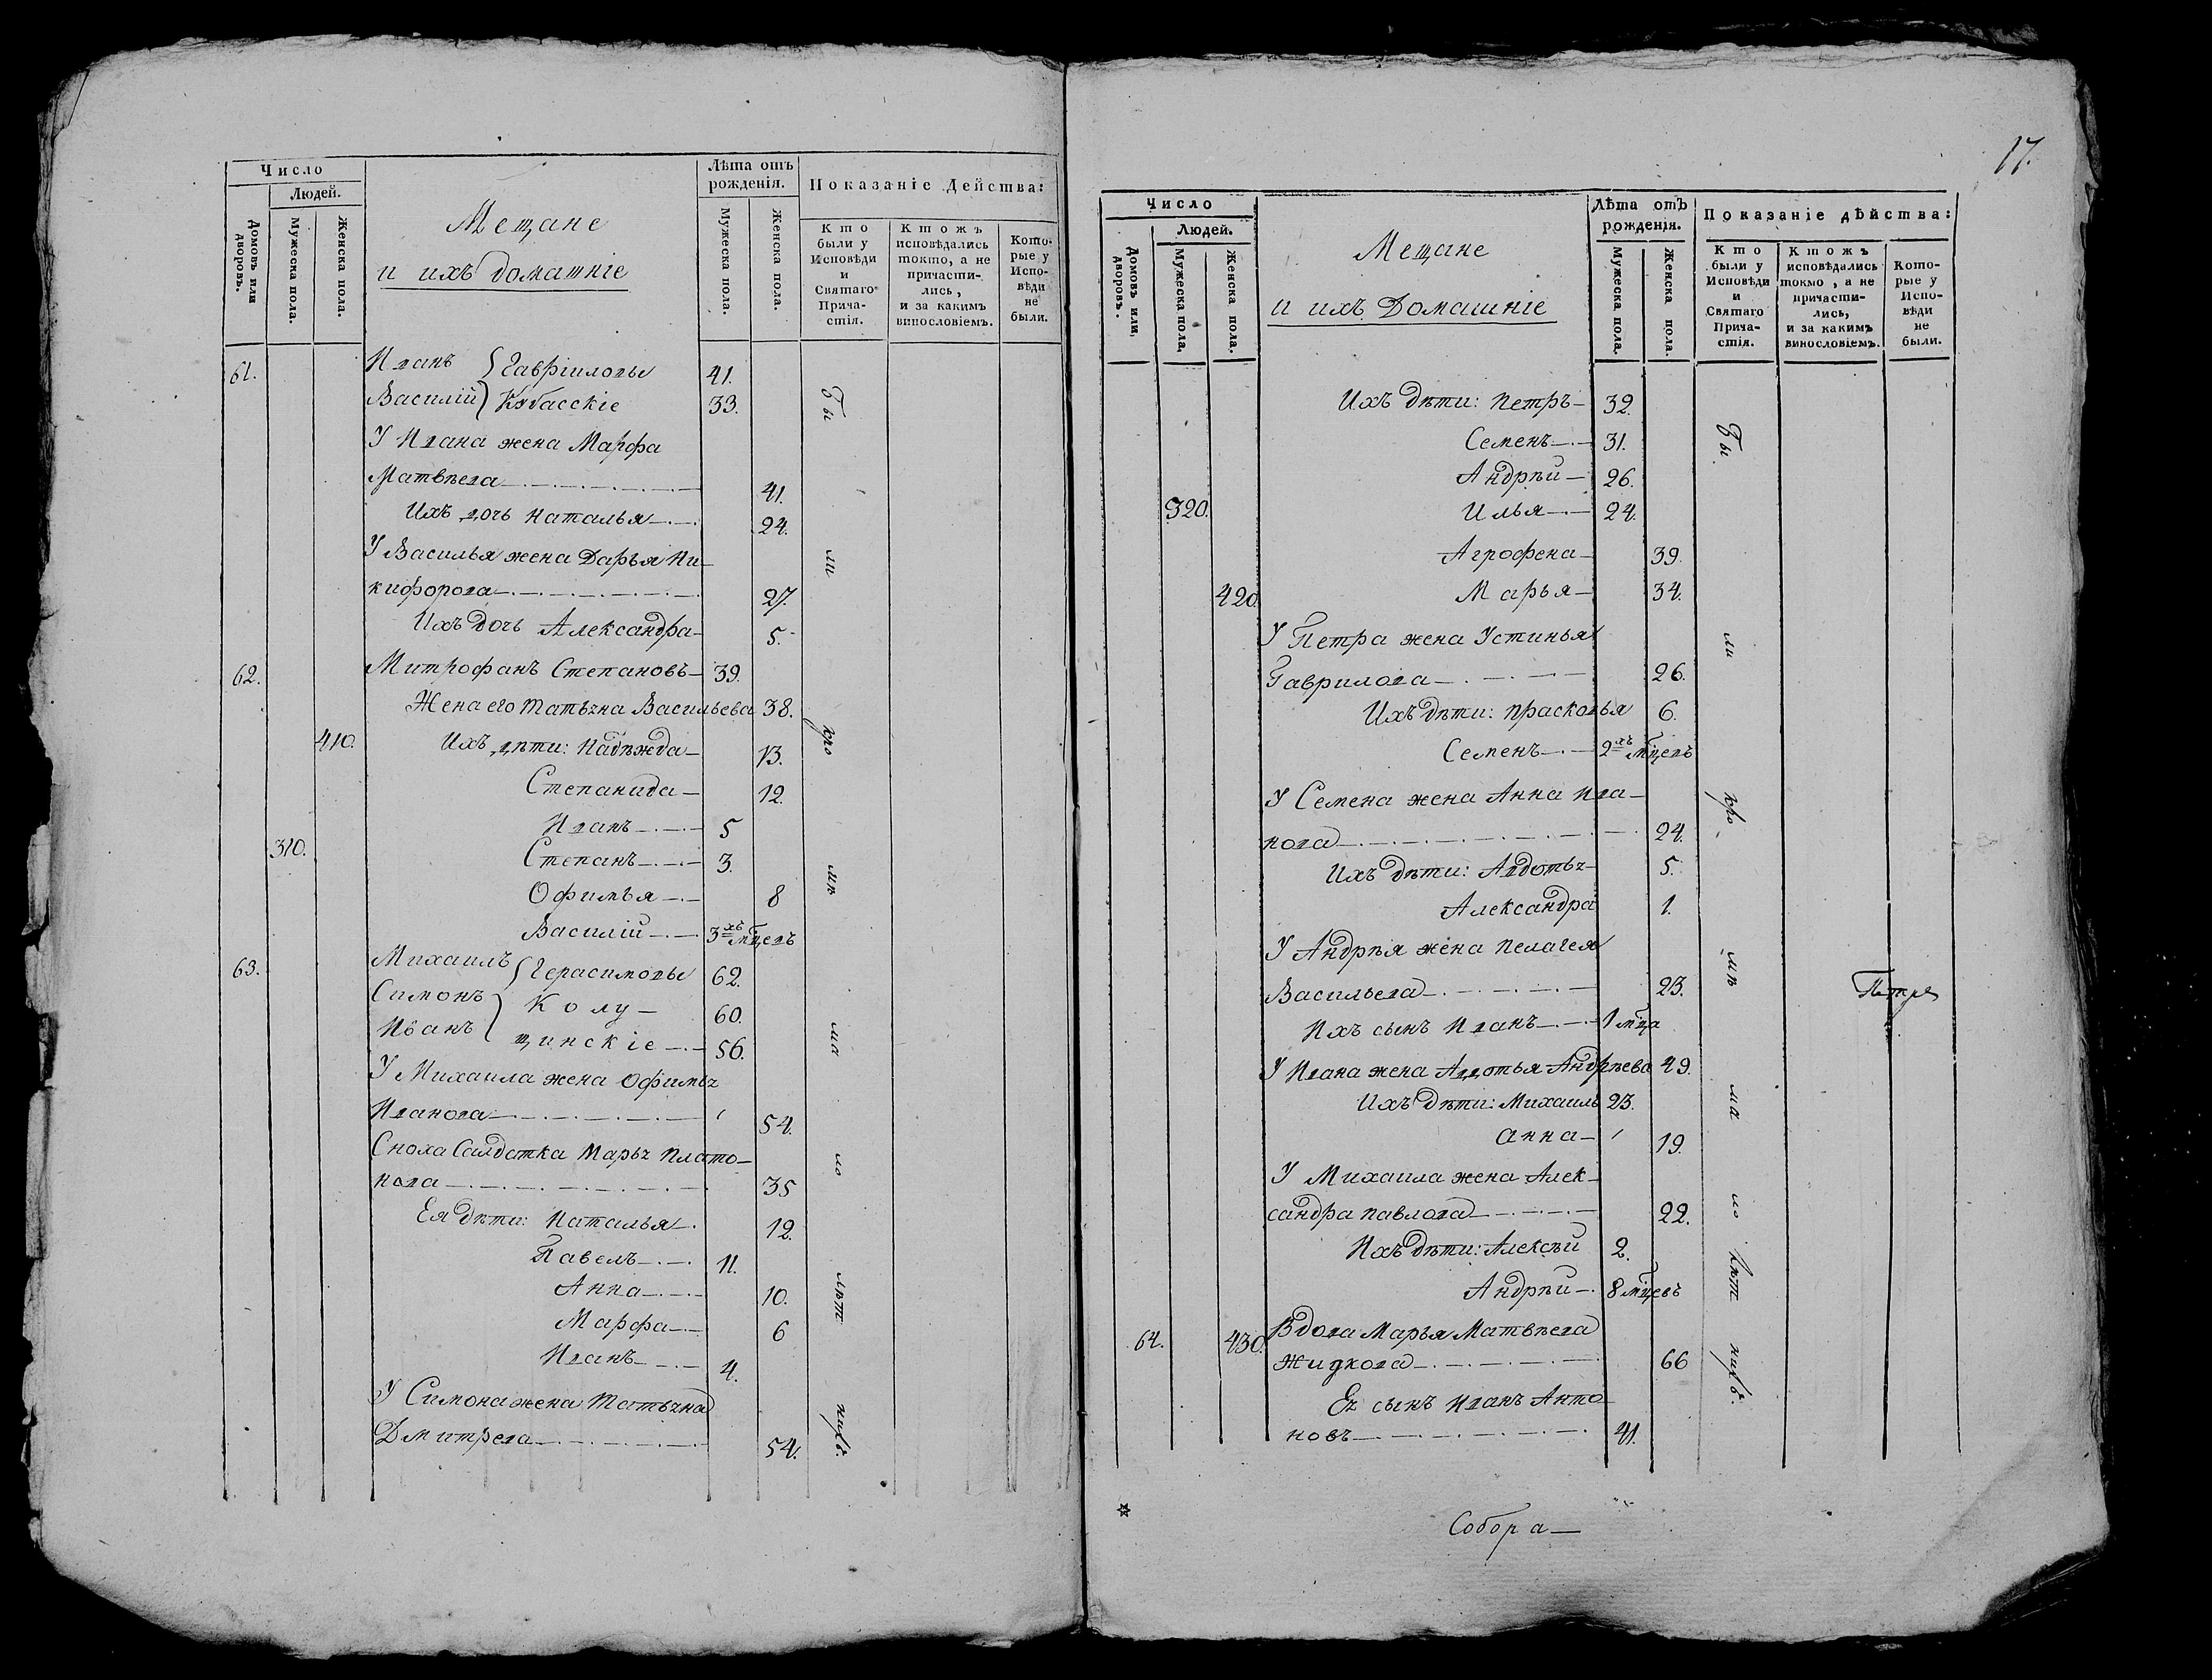 Число
Людей.
Домовъ или дворовъ.
Мужеска пола.
Женска пола.
Мещане
и ихъ домашніе
Лѣта отъ
рожденія.
Мужеска пола.
Женска пола.
Показаніе Действа:
Кто
были у
Исповѣди
и
Святаго
Прича-
стія.
Ктожъ
исповѣдались
токмо, а не
причасти-
лись,
и за какимъ
винословіемъ.
Кото-
рые у
Испо-
вѣди
не
были.
61. Иванъ Гавріиловы 41.
Василій Кубасскіе 33.
У Ивана жена Марфа
Матвѣева 41.
Ихъ дочь Наталья 24.
У Василья жена Дарья Ни-
кифорова 27.
Ихъ дочь Александра 5.
62. Митрофанъ Степановъ 39.
Жена его Татьяна Васильева 38.
410. Ихъ дѣти: Надѣжда 13.
Степанида 12.
Иванъ 5
310. Степанъ 3.
Офимья 8
Василій 3хъ мцевъ
63. Михаилъ Герасимовы 62.
Симонъ Колу- 60.
Иванъ щинскіе 56.
У Михаила жена Офимья
Иванова 54.
Сноха Салдатка Марья Плато-
нова 35
Ея дѣти: Наталья 12.
Павелъ 11.
Анна 10.
Марфа 6
Иванъ 4.
У Симона жена Татьяна
Дмитрева 54.
Бы
ли
по
ма
ло
лѣт
17.
Число
Людей.
Домовъ или дворовъ.
Мужеска пола.
Женска пола.
Мещане
и ихъ Домашніе
Лѣта отъ
рожденія.
Мужеска пола.
Женска пола.
Показаніе дѣйства:
Кто
были у
Исповѣди
и
Святаго
Прича-
стія.
Ктожъ
исповѣдались
токмо, а не
причасти-
лись,
и за какимъ
винословіемъ.
Кото-
рые у
Испо-
вѣди
не
были.
Ихъ дѣти: Петръ 32.
Семенъ 31.
Андрѣй 26.
320. Илья 24.
Агрофена 39.
420. Марья 34.
У Петра жена Устинья
Гаврилова 26.
Ихъ дѣти: Прасковья 6.
Семенъ 2хъ мцевъ
У Семена жена Анна Ива-
нова 24.
Ихъ дѣти: Авдотья 5.
Александра 1.
У Андрѣя жена Пелагея
Васильева 23.
Ихъ сынъ Иванъ 1 мца
У Ивана жена Авдотья Андрѣева 49.
Ихъ дѣти: Михаилъ 23.
Анна 19.
У Михаила жена Алек-
сандра Павлова 22.
Ихъ дѣти: Алексѣй 2.
Андрѣй 8 мцевъ
64. 430. Вдова Марья Матвѣева
Жидкова 66
Ея сынъ Иванъ Анто
новъ 41.
Бы
ли
ма
ло
лѣт
Собора